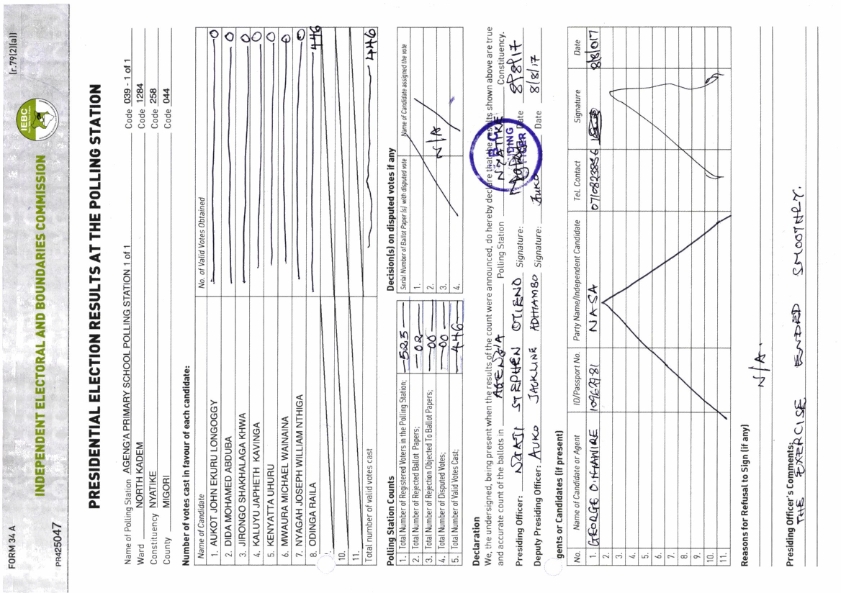 FORM 34 A
(r.79(2)(a))
IEBC
INDEPENDENT ELECTORAL AND BOUNDARIES COMMISSION
PR425047
PRESIDENTIAL ELECTION RESULTS AT THE POLLING STATION
Name of Polling Station AGENG'A PRIMARY SCHOOL POLLING STATION 1 of 1 Code 039 - 1 of 1
Ward NORTH KADEM Code 1284
Constituency NYATIKE Code 258
County MIGORI Code 044
Number of votes cast in favour of each candidate:
Name of Candidate No. of Valid Votes Obtained
1. AUKOT JOHN EKURU LONGOGGY 0
2. DIDA MOHAMED ABDUBA 0
3. JIRONGO SHAKHALAGA KHWA 0
4. KALUYU JAPHETH KAVINGA 0
5. KENYATTA UHURU 0
6. MWAURA MICHAEL WAINAINA 0
7. NYAGAH JOSEPH WILLIAM NTHIGA 0
8. ODINGA RAILA 446
10.
11.
Total number of valid votes cast 446
Polling Station Counts
1. Total Number of Registered Voters in the Polling Station; 525
2. Total Number of Rejected Ballot Papers; 02
3. Total Number of Rejection Objected To Ballot Papers; 00
4. Total Number of Disputed Votes; 00
5. Total Number of Valid Votes Cast; 446
Decision(s) on disputed votes if any
Serial Number of Ballot Paper (s) with disputed vote Name of Candidate assigned the vote
1.
2.
3. N/A
4.
Declaration
We, the undersigned, being present when the results of the count were announced, do hereby declare that the results shown above are true
and accurate count of the ballots in AGENG'A Polling Station NYATIKE Constituency.
Presiding Officer: STEPHEN OTIENO Signature: Date 8/8/17
Deputy Presiding Officer: AUKO JACKLINE ADHIAMBO Signature: Auko Date 8/8/17
gents or Candidates (if present)
No. Name of Candidate or Agent ID/Passport No. Party Name/Independent Candidate Tel. Contact Signature Date
1. GEORGE NASA 0710823856
2.
3.
4.
5.
6.
7.
8.
9.
10.
11.
Reasons for Refusal to Sign (if any)
N/A.
Presiding Officer's Comments:
THE EXERCISE ENDED SMOOTHLY.